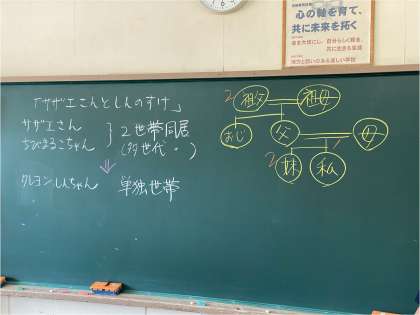 心の軸を育て、
共に未来を拓く
「サザエさんとしんのすけ」
サザエさん
ちびまるこちゃん
2世帯同居
(多世代・)
クレヨンしんちゃん
単独世帯
2 祖父 祖母
おじ 父 母
2 妹 私